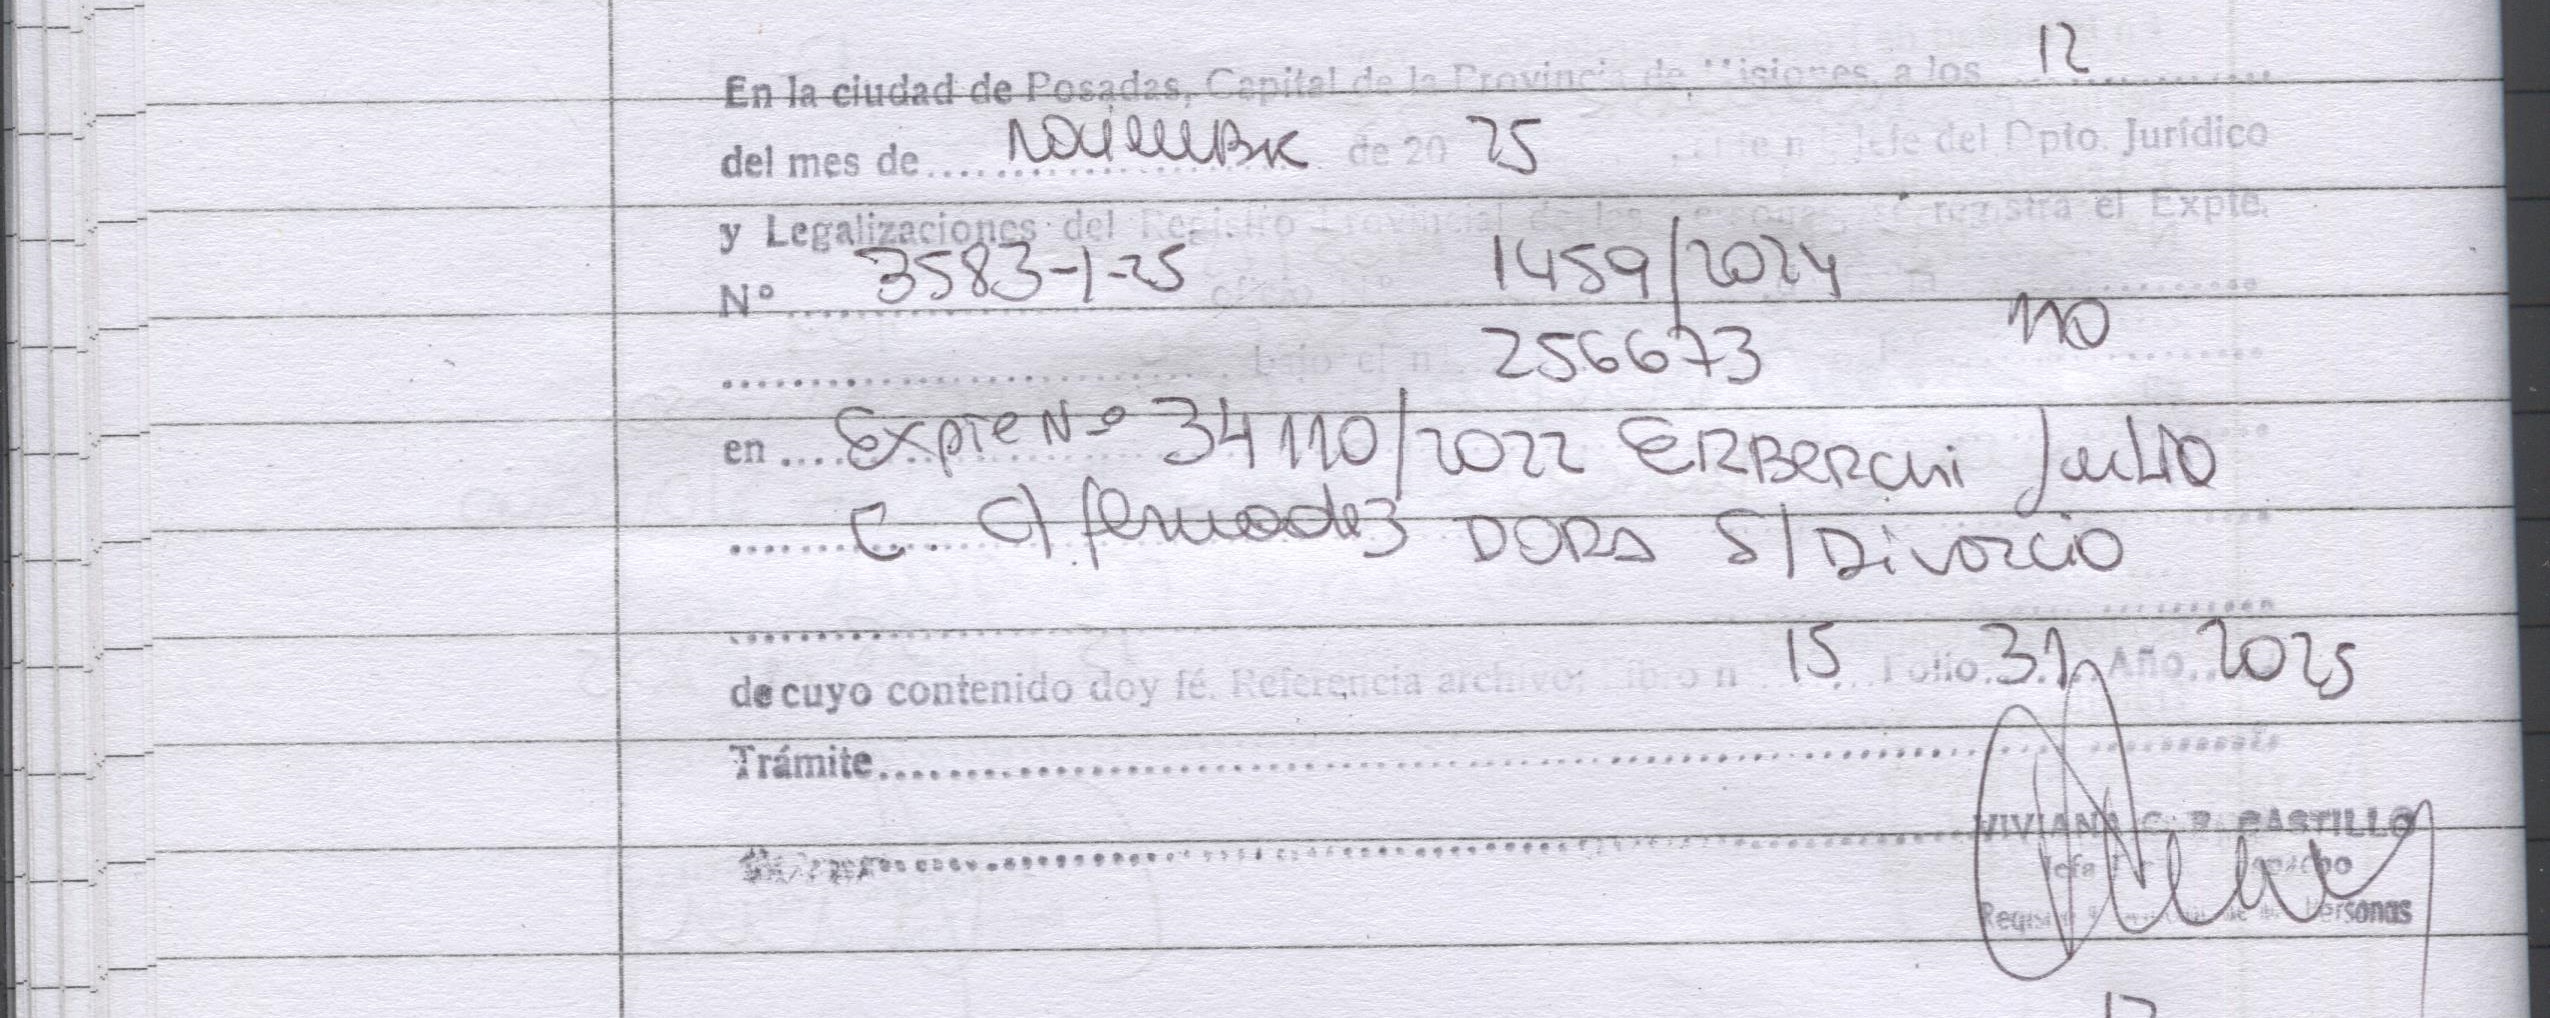 En la ciudad de Posadas, Capital de la Provincia de Misiones, a los 12
del mes de Noviembre de 20 25 Jefe del Dpto. Jurídico
y Legalizaciones del Registro Provincial de las registra el Expte.
Nº 3583-1-25 oficio 1459/2024
bajo el nº 256673 110
en Expte Nº 34110/2022 ERBERCHI JULIO
C. c/ fernandez DORA S/Divorcio
de cuyo contenido doy fé. Referencia archivo: libro n 15 Folio 31 Año 2025
Trámite
VIVIANA C. R. CASTILLO
Jefa
Personas
12